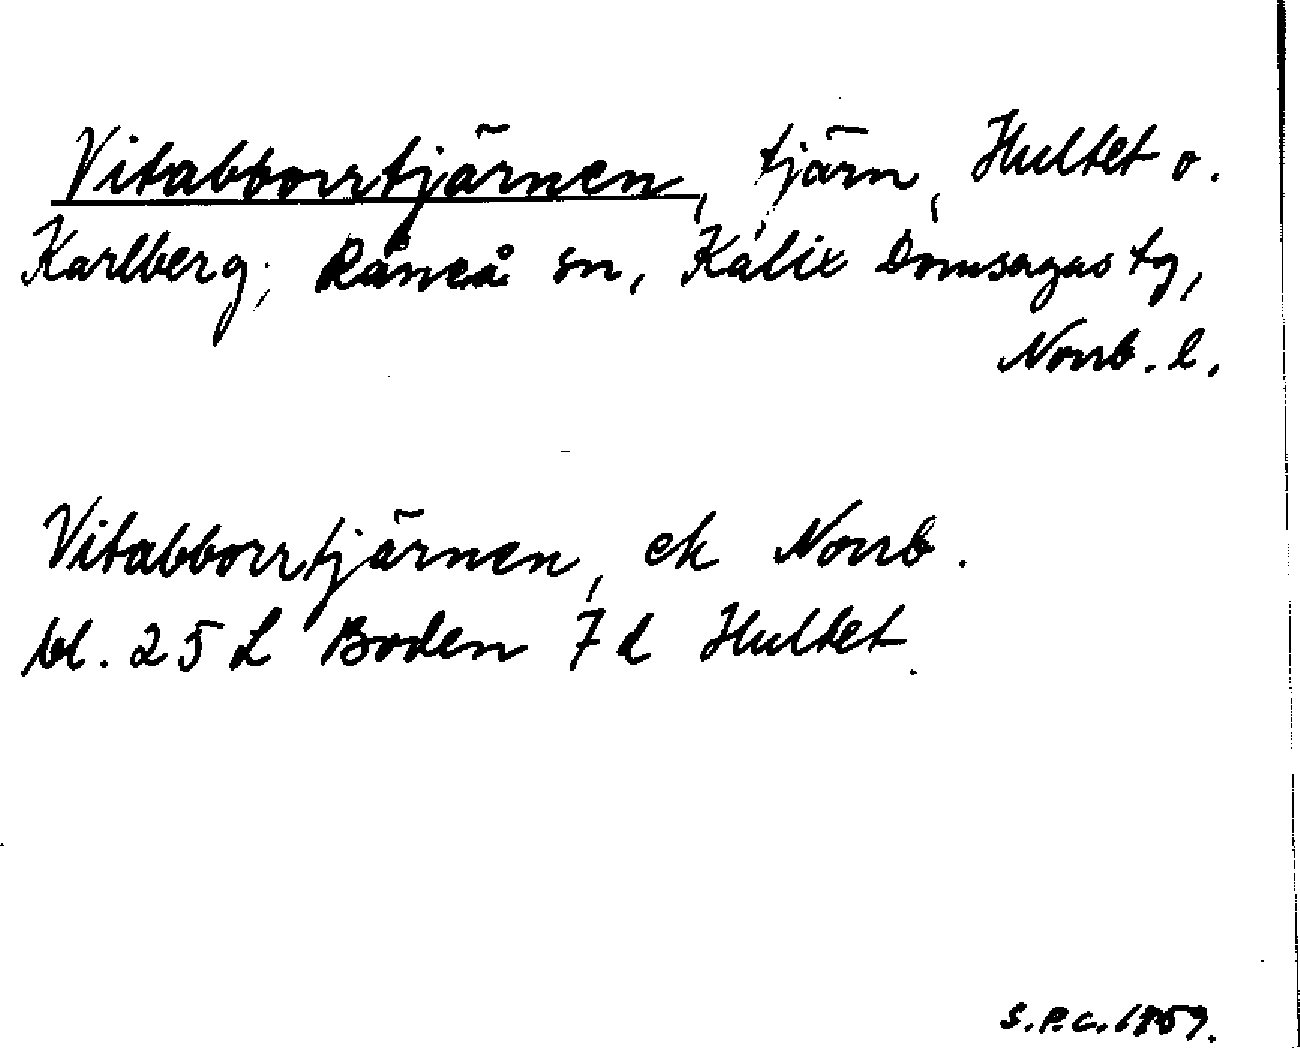 Vitabborrtjärnen, tjärn, Hultet o.
Karlberg, Råneå sn, Kalix Domsagas tg,
Norrb. l.
Vitabborrtjärnen, ek Norrb.
bl. 25 L Boden 7d Hultet.
S.P.C. 1859.